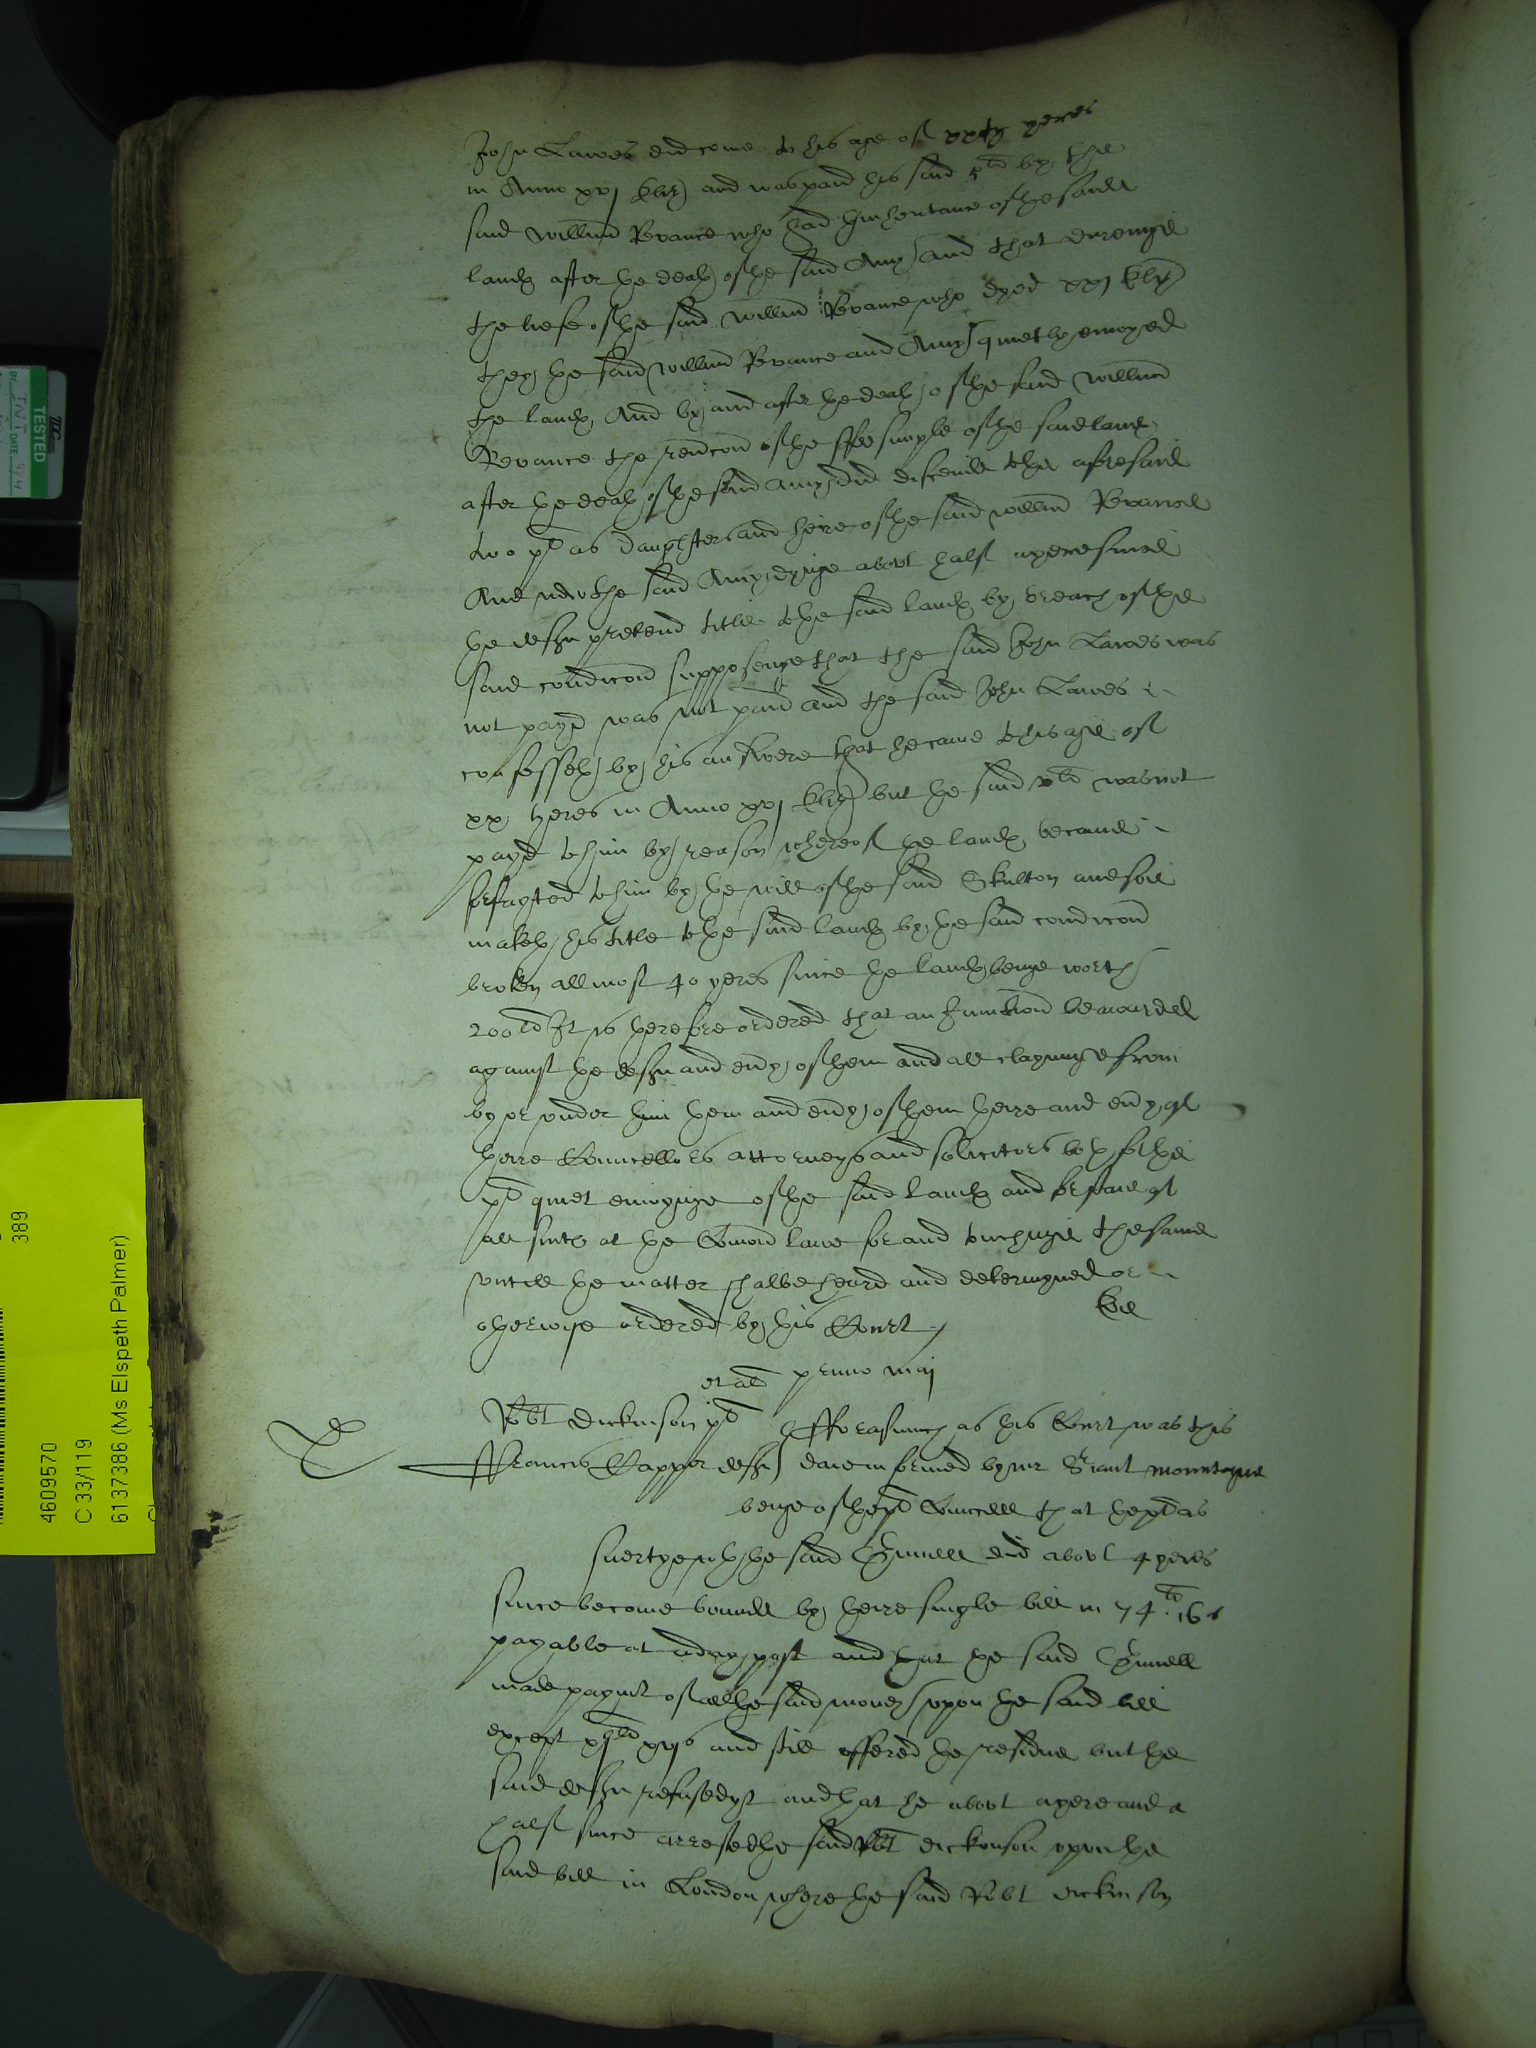 John Lawes did come to his age of xxty yeres
in Anno xvj Eliz and was paid his said 5li by the
said Willm Revance who had thinheritance of the saide
landes after the death of the said Amy And that dureinge
the liefe of the said Willm Revance who dyed xxj Eliz
they the said Willm Revance and Amy quietly enioyed
the landes And by and after the death of the said Willm
Revance the revcon of the ffee simple of the said landes
after the death of the said Amy did discend to the aforesaid
two pl as daughters and heire of the said Willm Revance
And nowe the said Amy dyinge about half a yere since
the deftes pretend title to the said landes by breach of the
said condicon supposinge that the said John Lawes was
not payd was not paid and the said John Lawes
confesseth by his answere that he came to his age of
xx yeres in Anno xvj Eliz but the said vli was not
payd to him by reason whereof the landes became
forfayted to him by the will of the said Skulton and soe
maketh his title to the said landes by the said condicon
broken allmost 40 yeres since the landes beinge worth
200li It is therefore ordered that an Iniunction be awarded
against the deftes and euy of them and all clayminge from
by or under him them and euy of them theire and euy of
theire Councellors attorneys and solicitors both for the
pl quiet enioyinge of the said landes and for staie of
all suites at the Comon lawe for and touchinge the same
untill the matter shalbe heard and determyned or
otherwise ordered by this Court
et al primo maij
Robt Dickinson pl fforasmuch as this Court was this
Francis Capper deft daie informed by mr Sriant Mountague
beinge of the pl Councell that the pl as
suertye wth the said Grinell did about 4 yeres
since become bounde by theire single bill in 74li 16s
payable at a day past and that the said Grinell
made paymt of all the said money upon the said bill
except xijli xvjs and still offered the residue but the
said deft refused yt and that he about a yere and a
half since arrested the said Robt dickenson upon the
said bill in London where the said Robt dickinson
TESTED
DATE
389
4609570
C 33/119
6137386 (Ms Elspeth Palmer)